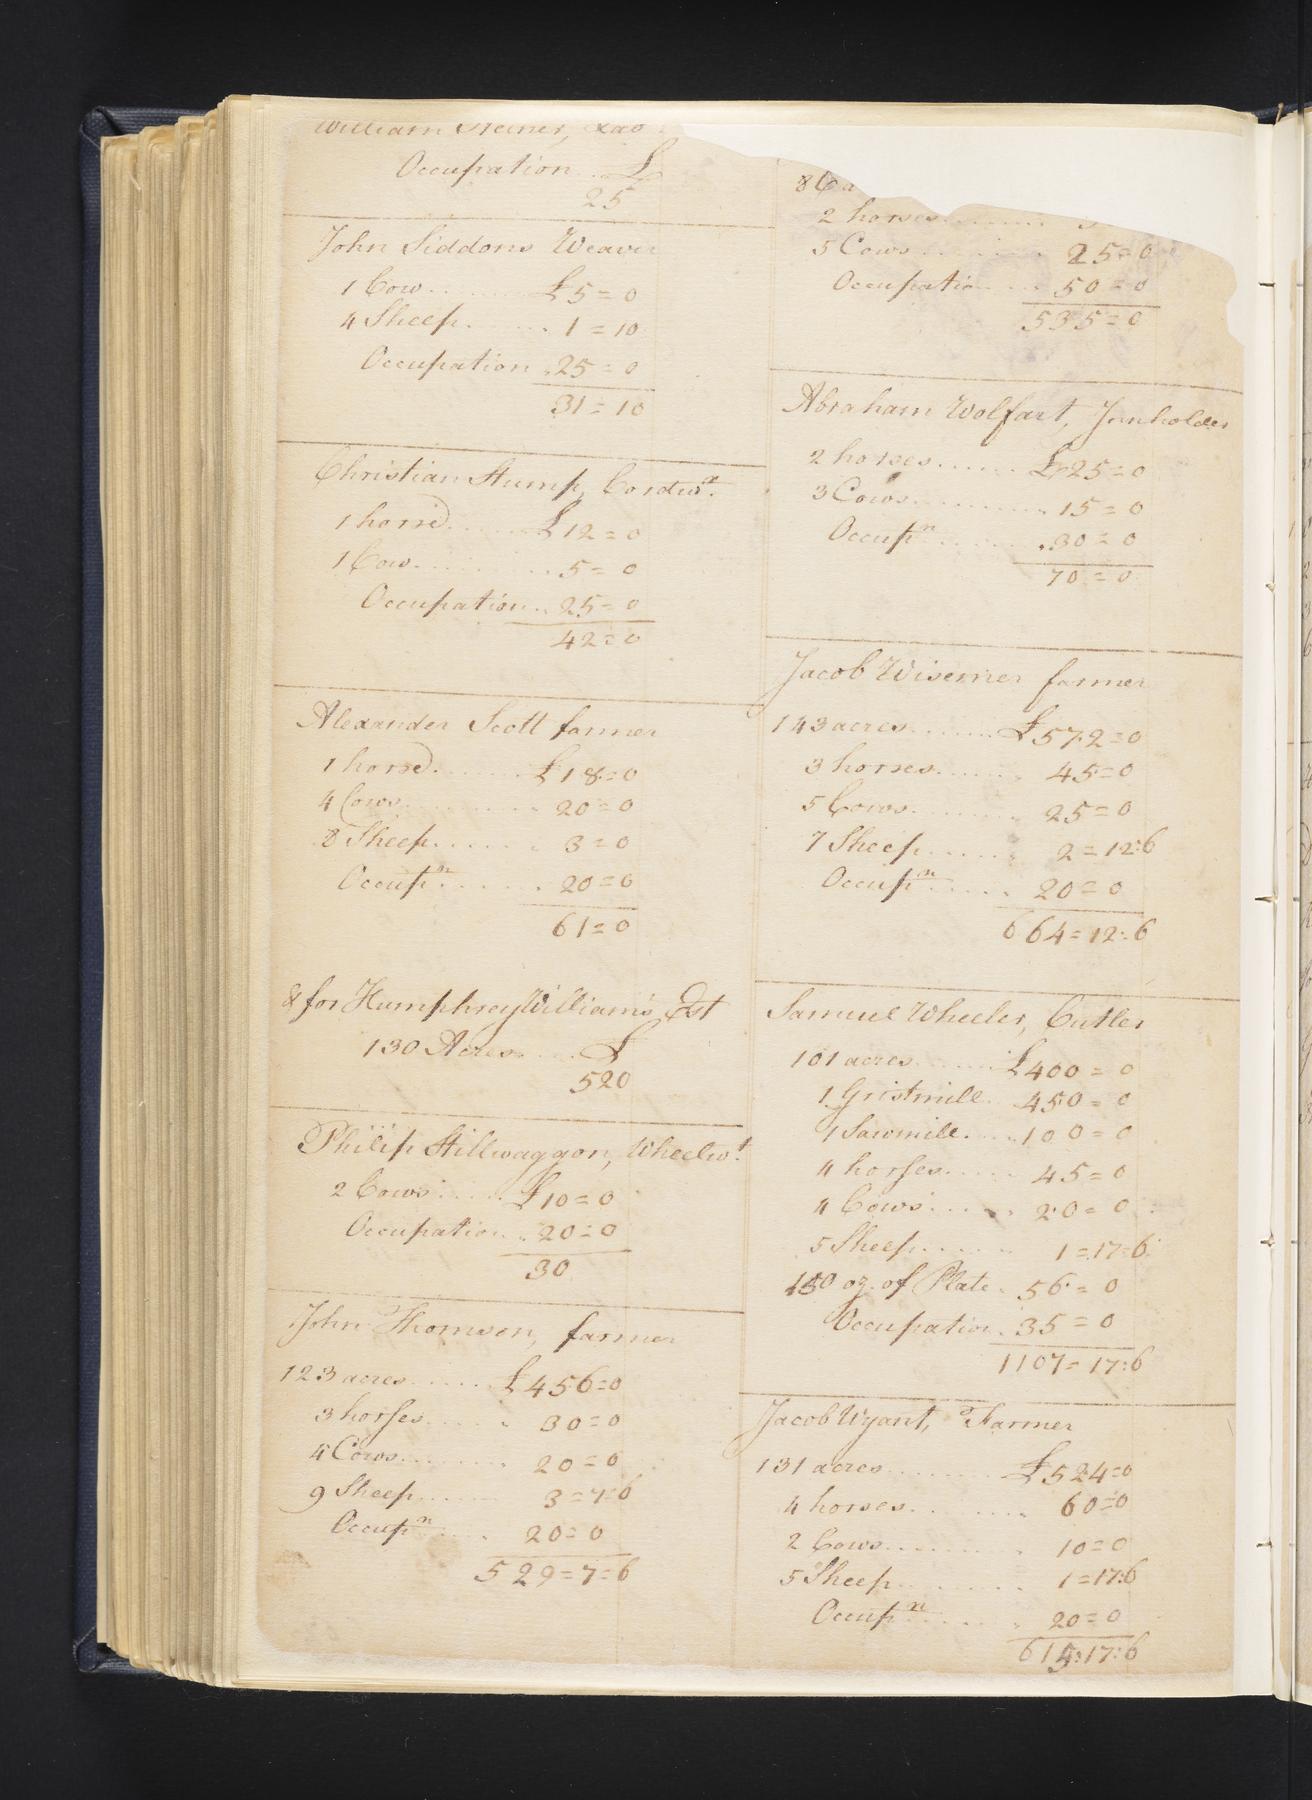 William Steiner, Lab
Occupation .. £
25
John Siddons Weaver
1 Cow .. £5=0
4 Sheep ... 1=10
Occupation .25=0
31=10
Christian Stump, Cordwr.
1 horse .... £12=0
1 Cow ... 5=0
Occupation .. 25=0
42=0
Alexander Scott farmer
1 horse ... £18=0
4 Cows ... 20=0
8 Sheep ... 3=0
Occupn ... 20=0
61=0
& for Humphrey William's Est
130 Acres .... £
520
Philip Stillwaggon, Wheelwt.
2 Cows .... £10=0
Occupation .. 20=0
30
John Thomson, farmer
123 acres ..... £456=0
3 horses .... 30=0
4 Cows ... 20=0
9 Sheep ... 3=7=6
Occupn ... 20=0
529=7=6
2 horses
5 Cows ... 25=0
Occupatio .. 50=0
535=0
Abraham Wolfart, Innholder
2 horses ..... £25=0
3 Cows ... 15=0
Occupn ... .30=0
70=0
Jacob Wisemer farmer
143 acres ..... £572=0
3 horses ... 45=0
5 Cows ... 25=0
7 Sheep .... 2=12:6
Occupn ... 20=0
664=12:6
Samuel Wheeler, Cutler
101 acres ..... £400=0
1 Gristmill . 450=0
1 Sawmill ... 100=0
4 horses .... 45=0
4 Cows .... 20=0
5 Sheep .... 1=17=6
150 oz. of Plate . 56=0
Occupation . 35=0
1107=17:6
Jacob Wyant, Farmer
131 acres ..... £524=0
4 horses .... 60=0
2 Cows .... 10=0
5 Sheep .... 1=17:6
Occupn .... 20=0
615:17:6